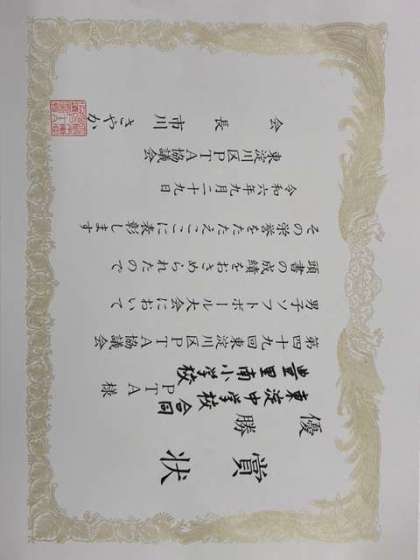 賞状
優勝
東淀中学校
豊里南小学校
合同
PTA様
第四十九回東淀川区PTA協議会
男子ソフトボール大会において
頭書の成績をおさめられたので
その栄誉をたたえここに表彰します
令和六年九月二十九日
東淀川区PTA協議会
会長 市川 さやか